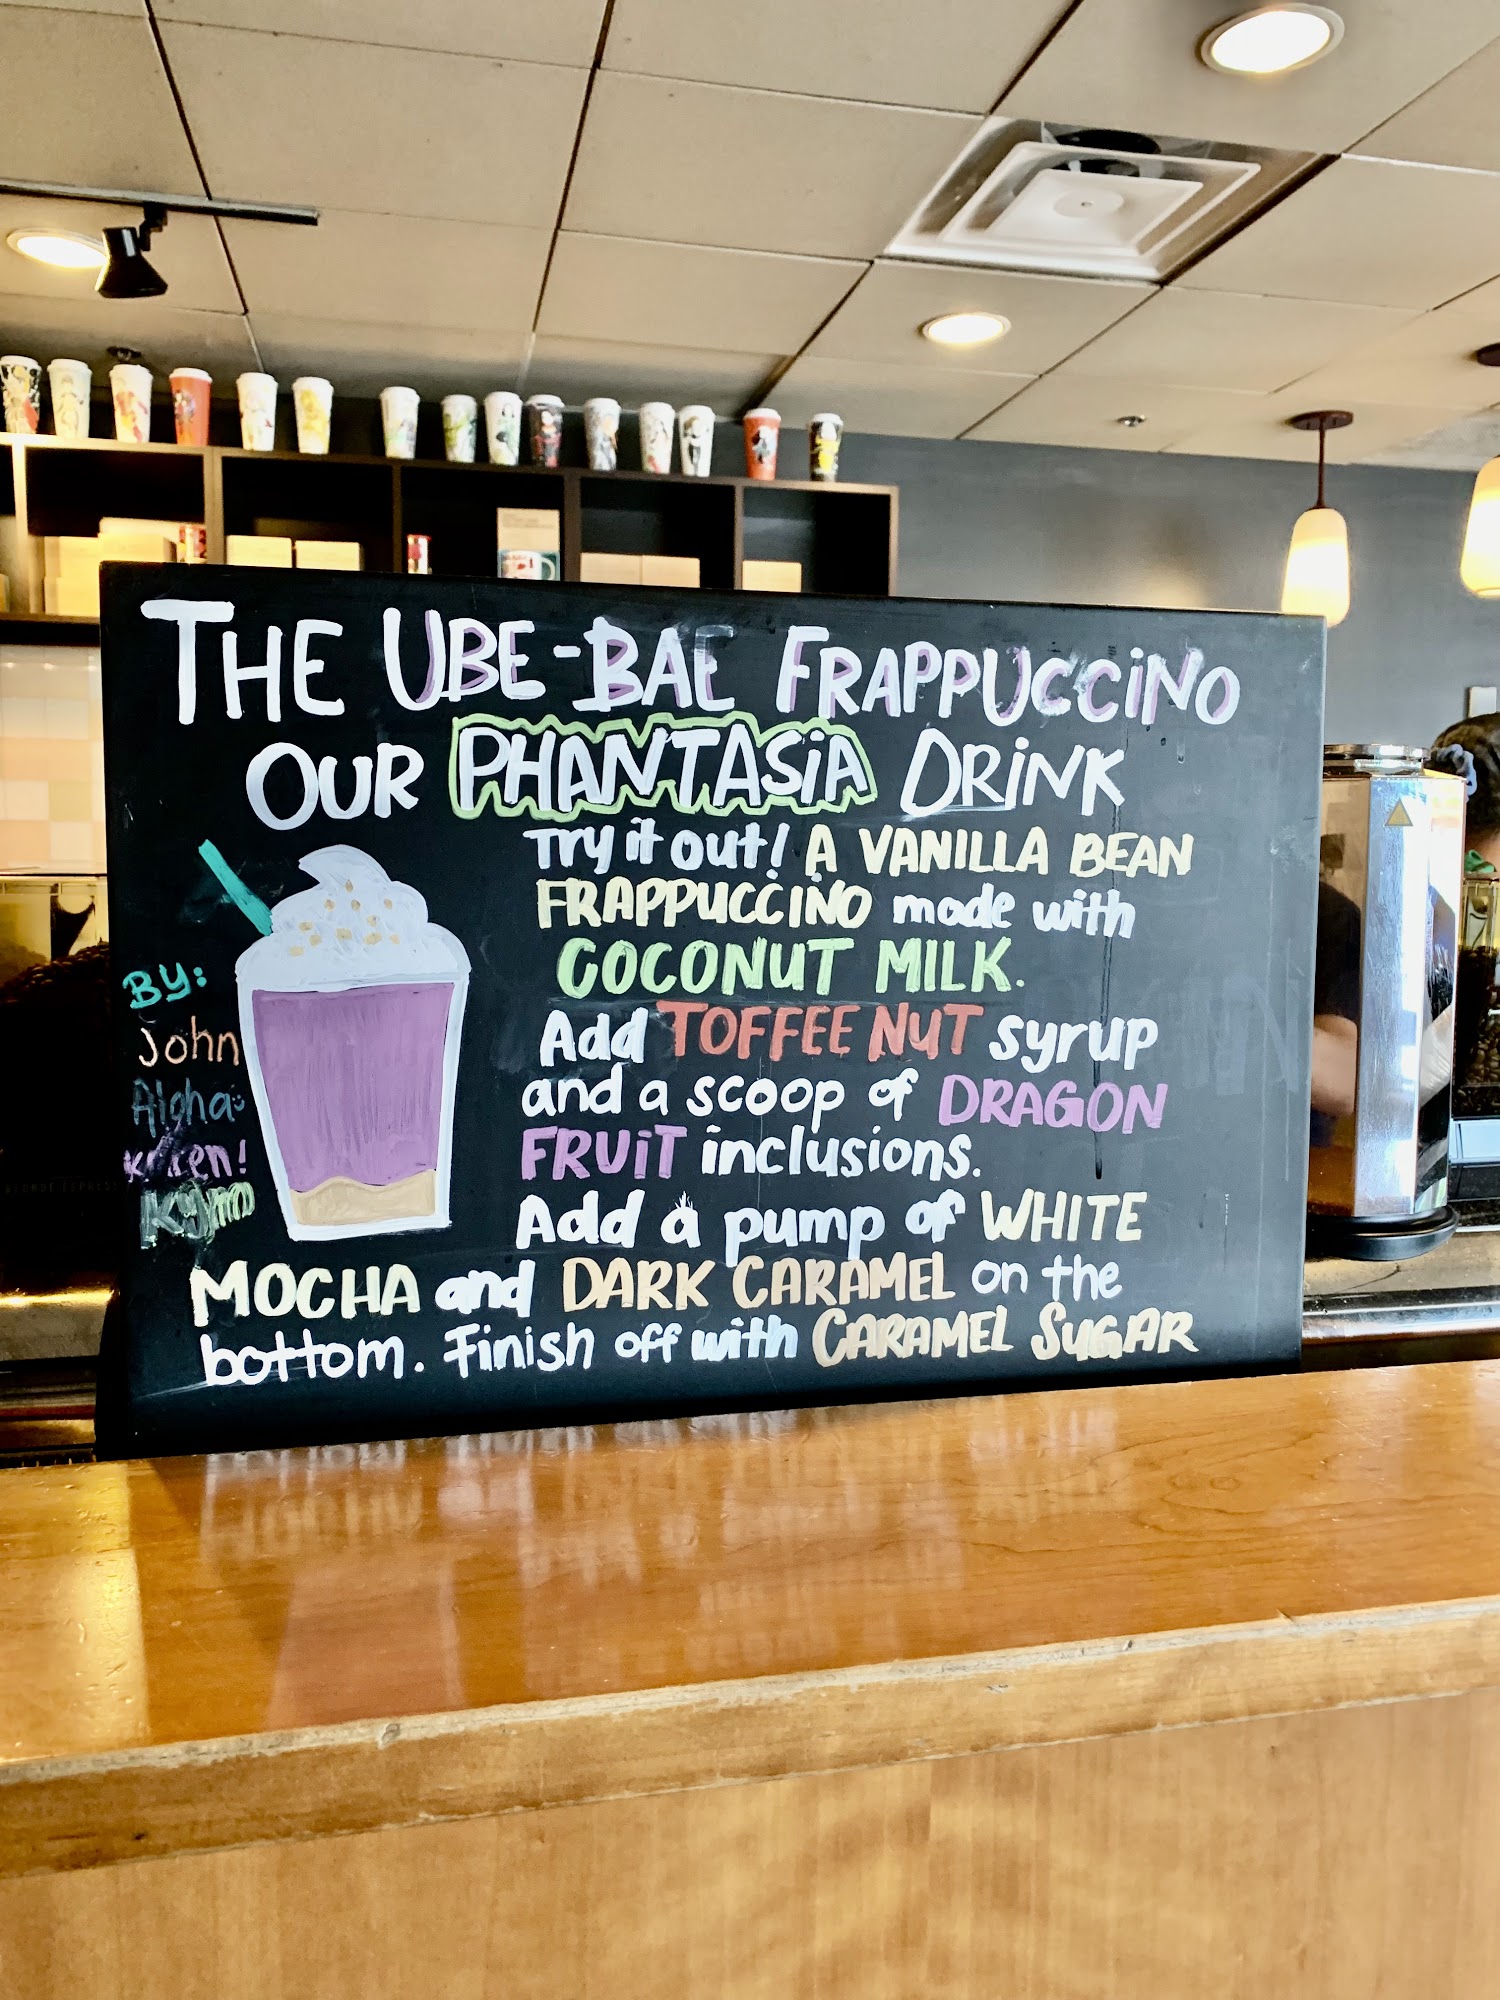 THE UBE-BAE FRAPPUCCiNO
OUR PHANTASiA DRiNK
Try it out! A VANILLA BEAN
FRAPPUCCiNO made with
COCONUT MILK.
Add TOFFEE NUT syrup
and a scoop of DRAGON
FRUiT inclusions.
Add a pump of WHITE
MOCHA and DARK CARAMEL on the
bottom. Finish off with CARAMEL SUGAR
BY:
John
Aloha